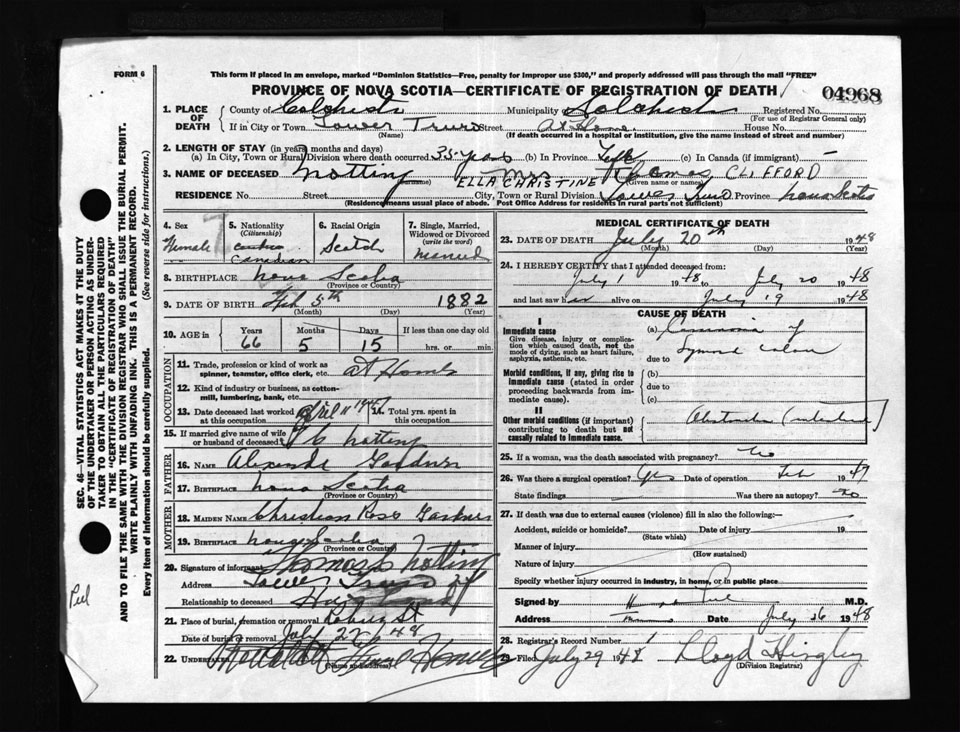 FORM 6
This form if placed in an envelope, marked "Dominion Statistics—Free, penalty for improper use $300," and properly addressed will pass through the mail "FREE"
PROVINCE OF NOVA SCOTIA—CERTIFICATE OF REGISTRATION OF DEATH
04968
1. PLACE OF DEATH
County of Colchester Municipality of Colchester Registered No.
(For use of Registrar General only)
If in City or Town Lower Truro Street At Home House No.
(Name) (If death occurred in a hospital or institution, give the name instead of street and number)
2. LENGTH OF STAY (in years months and days)
(a) In City, Town or Rural Division where death occurred 35 years (b) In Province Life (c) In Canada (if immigrant) —
3. NAME OF DECEASED Notting Mrs Thomas CLIFFORD
ELLA CHRISTINE (Given name or names)
RESIDENCE No. Street City, Town or Rural Division Lower Truro Province Nova Scotia
(Residence means usual place of abode. Post Office Address for residents in rural parts not sufficient)
4. Sex Female
5. Nationality (Citizenship) Canadian
6. Racial Origin Scotch
7. Single, Married, Widowed or Divorced (write the word) Married
8. BIRTHPLACE Nova Scotia
(Province or Country)
9. DATE OF BIRTH Feb 5th 1882
(Month) (Day) (Year)
10. AGE in Years Months Days If less than one day old
66 5 15 hrs. or min.
OCCUPATION
11. Trade, profession or kind of work as spinner, teamster, office clerk, etc. At Home
12. Kind of industry or business, as cotton-mill, lumbering, bank, etc.
13. Date deceased last worked at this occupation April 11 1947
14. Total yrs. spent in this occupation
15. If married give name of wife or husband of deceased Notting
FATHER
16. NAME Gardner
17. BIRTHPLACE Nova Scotia
(Province or Country)
MOTHER
18. MAIDEN NAME Christian Rose
19. BIRTHPLACE Nova Scotia
(Province or Country)
20. Signature of informant Thomas Notting
Address Lower Truro
Relationship to deceased Husband
21. Place of burial, cremation or removal Robie St
Date of burial or removal July 22 48
22. UNDERTAKER Funeral Home
(Name and address)
MEDICAL CERTIFICATE OF DEATH
23. DATE OF DEATH July 20th 1948
(Month) (Day) (Year)
24. I HEREBY CERTIFY that I attended deceased from:
July 1 1948 to July 20 1948
and last saw her alive on July 19 1948
CAUSE OF DEATH
I
Immediate cause
Give disease, injury or complication which caused death, not the mode of dying, such as heart failure, asphyxia, asthenia, etc.
(a) Carcinoma of
due to
Morbid conditions, if any, giving rise to immediate cause (stated in order proceeding backwards from immediate cause)
(b)
due to
(c)
II
Other morbid conditions (if important) contributing to death but not causally related to immediate cause.
25. If a woman, was the death associated with pregnancy? No
26. Was there a surgical operation? Yes Date of operation Feb 1947
State findings Was there an autopsy? No
27. If death was due to external causes (violence) fill in also the following:—
Accident, suicide or homicide? Date of injury 19
(State which)
Manner of injury
(How sustained)
Nature of injury
Specify whether injury occurred in industry, in home, or in public place
Signed by M.D.
Address Date July 26 1948
28. Registrar's Record Number 1
29. Filed July 29 1948 Lloyd Hingley
(Division Registrar)
SEC. 46—VITAL STATISTICS ACT MAKES IT THE DUTY
OF THE UNDERTAKER OR PERSON ACTING AS UNDER-
TAKER TO OBTAIN ALL THE PARTICULARS REQUIRED
IN THE "CERTIFICATE OF REGISTRATION OF DEATH"
AND TO FILE THE SAME WITH THE DIVISION REGISTRAR WHO SHALL ISSUE THE BURIAL PERMIT.
WRITE PLAINLY WITH UNFADING INK. THIS IS A PERMANENT RECORD.
Every item of Information should be carefully supplied. (See reverse side for instructions.)